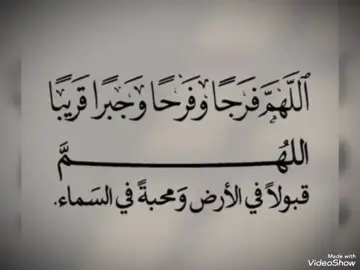 اَللَّهُمَّ فَرَجًا وَفَرَحًا وَجَبرًا قَرِيبًا
اللهُمَّ
قبولاً في الأرض وَمحبةً في السَماء.
Made with
VideoShow